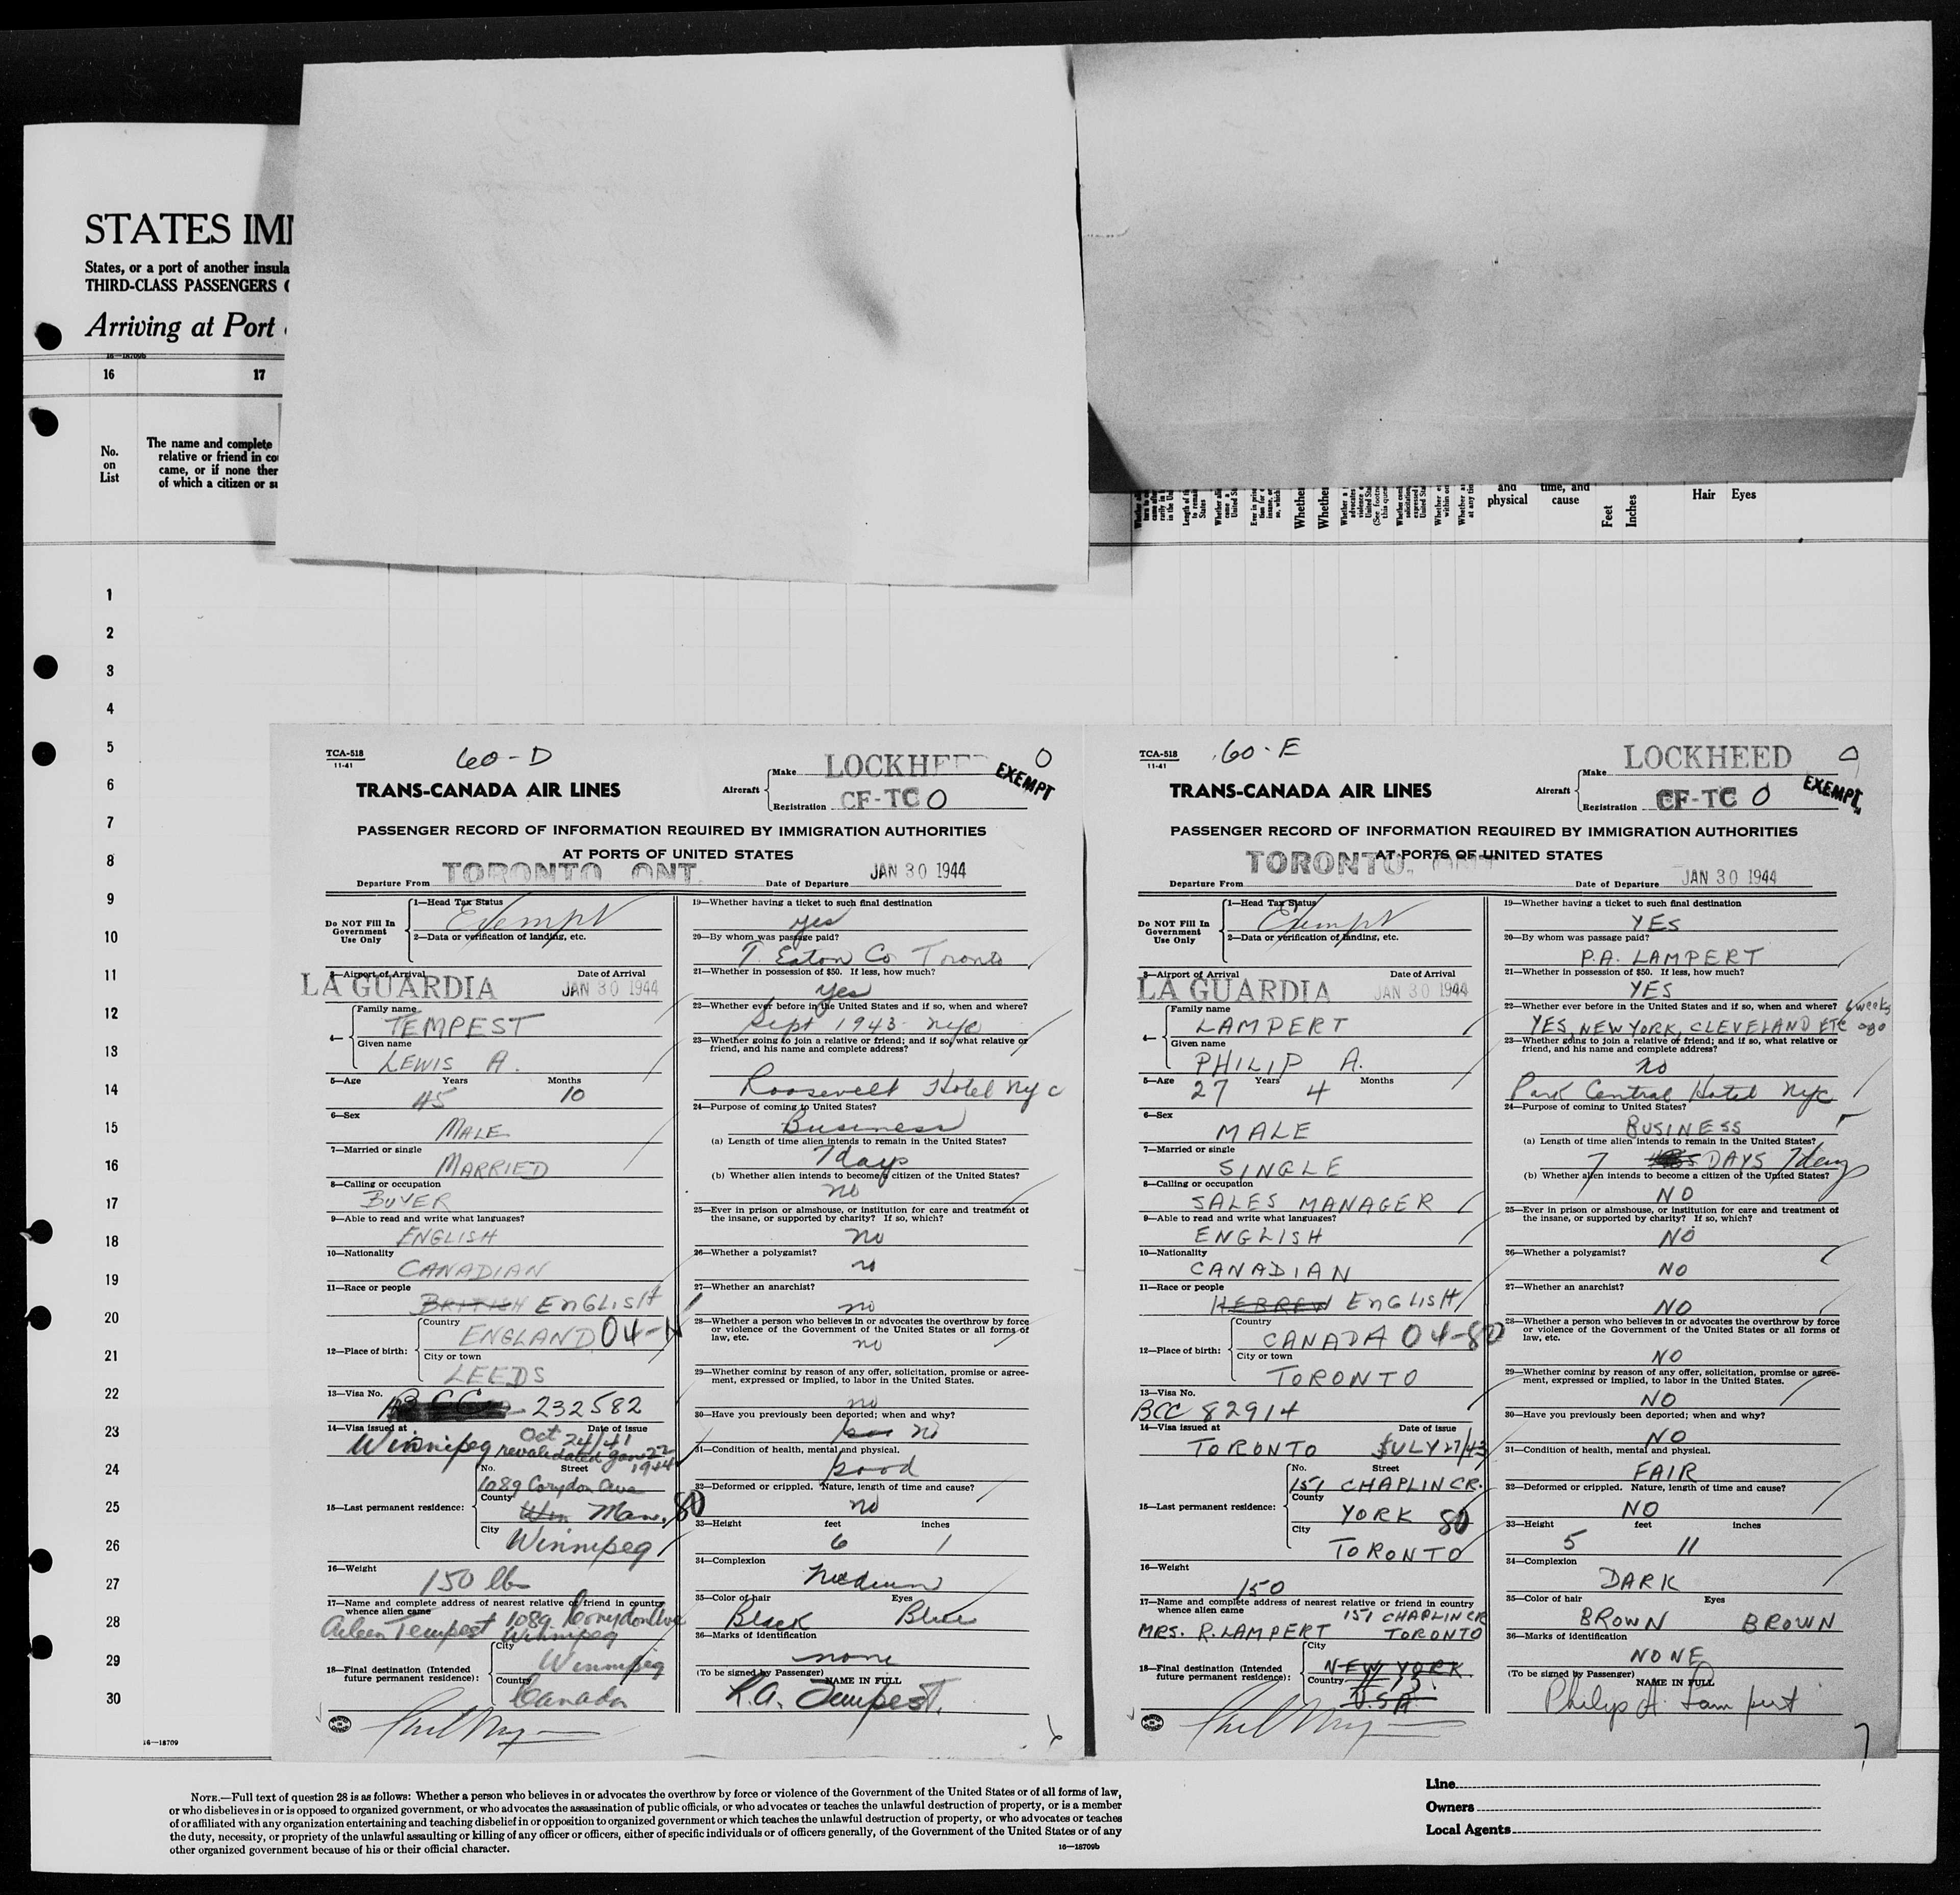 STATES IMM
States, or a port of another insula
THIRD-CLASS PASSENGERS
Arriving at Port
16—18709b
16 17
No. on List
The name and complete
relative or friend in co
came, or if none ther
of which a citizen or su
and physical
time, and cause
Feet
Inches
Hair Eyes
1
2
3
4
5
6
7
8
9
10
11
12
13
14
15
16
17
18
19
20
21
22
23
24
25
26
27
28
29
30
16—18709
TCA-518
11-41
60-D
LOCKHEED
0
EXEMPT
TRANS-CANADA AIR LINES
Aircraft
Make
Registration CF-TC O
PASSENGER RECORD OF INFORMATION REQUIRED BY IMMIGRATION AUTHORITIES
AT PORTS OF UNITED STATES
Departure From TORONTO ONT.
Date of Departure JAN 30 1944
Do NOT Fill In Government Use Only
1—Head Tax Status
Exempt
2—Data or verification of landing, etc.
3—Airport of Arrival Date of Arrival
LA GUARDIA JAN 30 1944
4—
Family name
TEMPEST
Given name
LEWIS A.
5—Age Years Months
45 10
6—Sex
MALE
7—Married or single
MARRIED
8—Calling or occupation
BUYER
9—Able to read and write what languages?
ENGLISH
10—Nationality
CANADIAN
11—Race or people
BRITISH ENGLISH
12—Place of birth:
Country
ENGLAND 04-1
City or town
LEEDS
13—Visa No.
232582
14—Visa issued at Date of issue
Winnipeg Oct 24/41
revalidated Jan 22 1944
15—Last permanent residence:
No. Street
1089 Corydon Ave
County
Win Man. 80
City
Winnipeg
16—Weight
150 lbs
17—Name and complete address of nearest relative or friend in country
whence alien came
Aileen Tempest 1089 Corydon Ave
Winnipeg
18—Final destination (Intended future permanent residence):
City
Winnipeg
Country
Canada
19—Whether having a ticket to such final destination
yes
20—By whom was passage paid?
T. Eaton Co Toronto
21—Whether in possession of $50. If less, how much?
yes
22—Whether ever before in the United States and if so, when and where?
Sept 1943 nyc
23—Whether going to join a relative or friend; and if so, what relative or
friend, and his name and complete address?
Roosevelt Hotel Nyc
24—Purpose of coming to United States?
Business
(a) Length of time alien intends to remain in the United States?
7 days
(b) Whether alien intends to become a citizen of the United States?
no
25—Ever in prison or almshouse, or institution for care and treatment of
the insane, or supported by charity? If so, which?
no
26—Whether a polygamist?
no
27—Whether an anarchist?
no
28—Whether a person who believes in or advocates the overthrow by force
or violence of the Government of the United States or all forms of
law, etc.
no
29—Whether coming by reason of any offer, solicitation, promise or agree-
ment, expressed or implied, to labor in the United States.
no
30—Have you previously been deported; when and why?
no
31—Condition of health, mental and physical.
good
32—Deformed or crippled. Nature, length of time and cause?
no
33—Height feet inches
6 1
34—Complexion
Medium
35—Color of hair Eyes
Black Blue
36—Marks of identification
none
(To be signed by Passenger) NAME IN FULL
L.A. Tempest.
TCA-518
11-41
60-E
LOCKHEED
0
EXEMPT
TRANS-CANADA AIR LINES
Aircraft
Make
Registration CF-TC O
PASSENGER RECORD OF INFORMATION REQUIRED BY IMMIGRATION AUTHORITIES
AT PORTS OF UNITED STATES
Departure From TORONTO, ONT
Date of Departure JAN 30 1944
Do NOT Fill In Government Use Only
1—Head Tax Status
Exempt
2—Data or verification of landing, etc.
3—Airport of Arrival Date of Arrival
LA GUARDIA JAN 30 1944
4—
Family name
LAMPERT
Given name
PHILIP A.
5—Age Years Months
27 4
6—Sex
MALE
7—Married or single
SINGLE
8—Calling or occupation
SALES MANAGER
9—Able to read and write what languages?
ENGLISH
10—Nationality
CANADIAN
11—Race or people
HEBREW ENGLISH
12—Place of birth:
Country
CANADA 04-80
City or town
TORONTO
13—Visa No.
BCC 82914
14—Visa issued at Date of issue
TORONTO JULY 27/43
15—Last permanent residence:
No. Street
151 CHAPLIN CR.
County
YORK 80
City
TORONTO
16—Weight
150
17—Name and complete address of nearest relative or friend in country
whence alien came 151 CHAPLIN CR
MRS. R. LAMPERT TORONTO
18—Final destination (Intended future permanent residence):
City
NEW YORK.
Country
U.S.A.
19—Whether having a ticket to such final destination
YES
20—By whom was passage paid?
P.A. LAMPERT
21—Whether in possession of $50. If less, how much?
YES
22—Whether ever before in the United States and if so, when and where?
YES, NEW YORK, CLEVELAND ETC 6 weeks ago
23—Whether going to join a relative or friend; and if so, what relative or
friend, and his name and complete address?
no
Park Central Hotel Nyc
24—Purpose of coming to United States?
BUSINESS
(a) Length of time alien intends to remain in the United States?
7 DAYS 7 days
(b) Whether alien intends to become a citizen of the United States?
NO
25—Ever in prison or almshouse, or institution for care and treatment of
the insane, or supported by charity? If so, which?
NO
26—Whether a polygamist?
NO
27—Whether an anarchist?
NO
28—Whether a person who believes in or advocates the overthrow by force
or violence of the Government of the United States or all forms of
law, etc.
NO
29—Whether coming by reason of any offer, solicitation, promise or agree-
ment, expressed or implied, to labor in the United States.
NO
30—Have you previously been deported; when and why?
NO
31—Condition of health, mental and physical.
FAIR
32—Deformed or crippled. Nature, length of time and cause?
NO
33—Height feet inches
5 11
34—Complexion
DARK
35—Color of hair Eyes
BROWN BROWN
36—Marks of identification
NONE
(To be signed by Passenger) NAME IN FULL
Philip A. Lampert
NOTE.—Full text of question 28 is as follows: Whether a person who believes in or advocates the overthrow by force or violence of the Government of the United States or of all forms of law,
or who disbelieves in or is opposed to organized government, or who advocates the assassination of public officials, or who advocates or teaches the unlawful destruction of property, or is a member
of or affiliated with any organization entertaining and teaching disbelief in or opposition to organized government or which teaches the unlawful destruction of property, or who advocates or teaches
the duty, necessity, or propriety of the unlawful assaulting or killing of any officer or officers, either of specific individuals or of officers generally, of the Government of the United States or of any
other organized government because of his or their official character.
16—18709b
Line
Owners
Local Agents